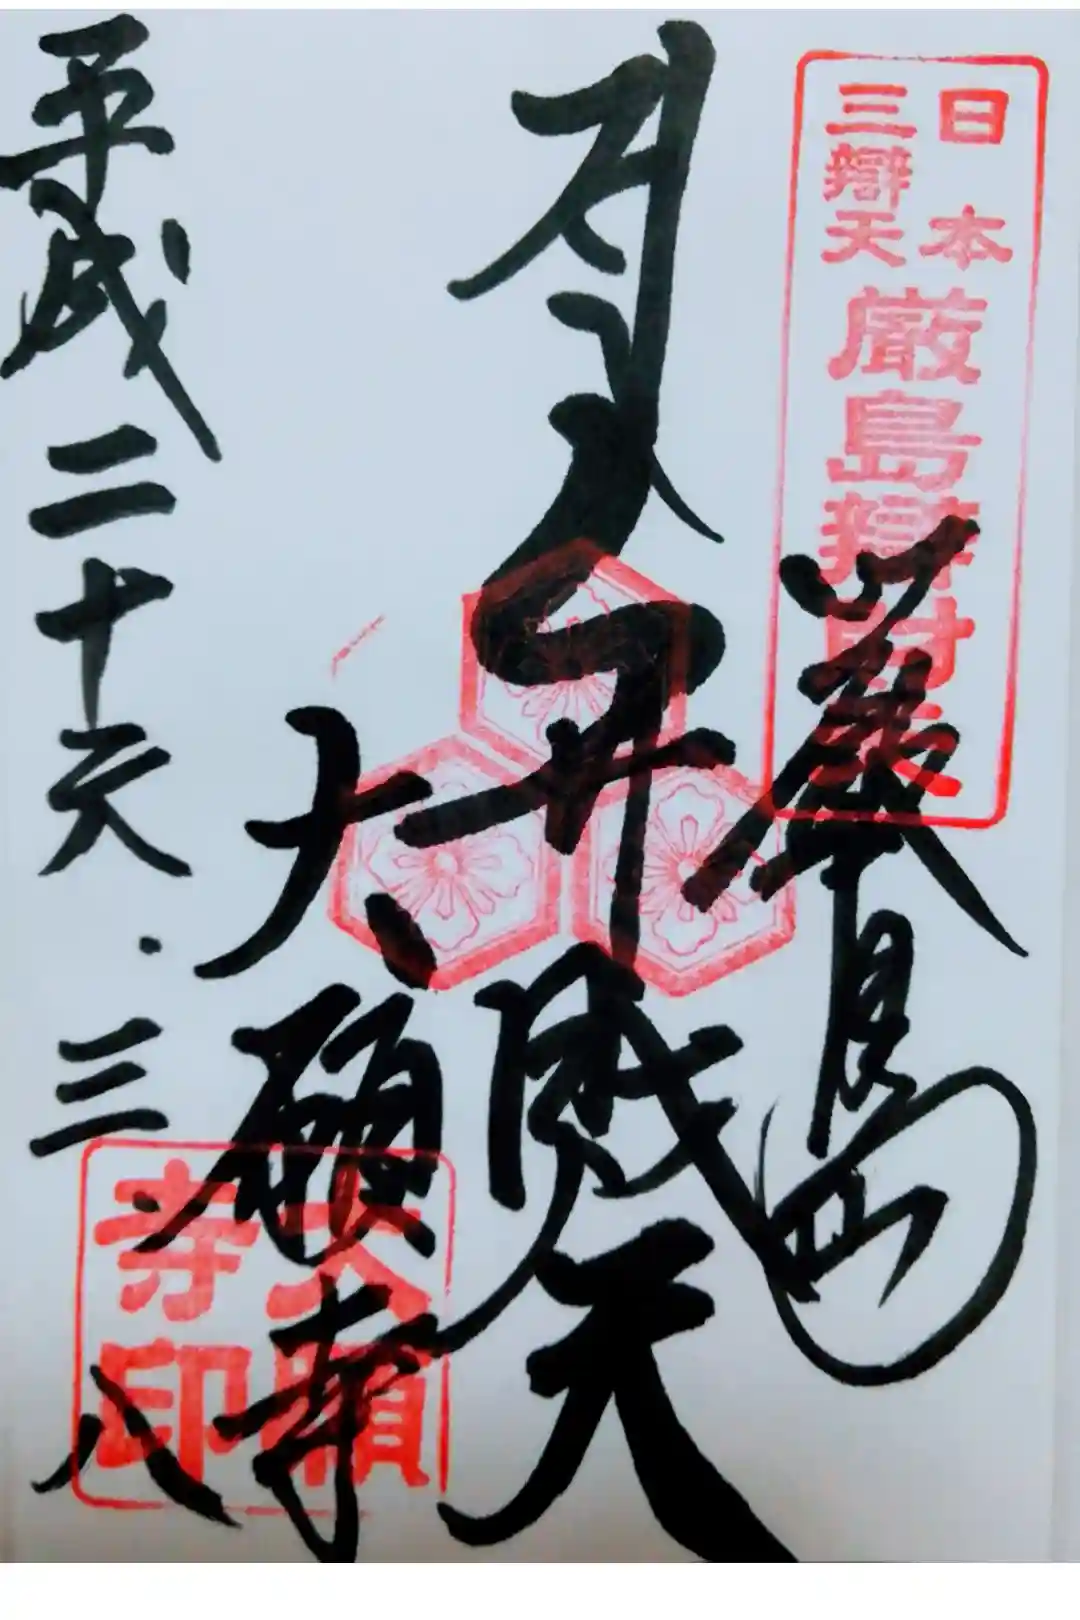 日本
三辯天
厳島辯財天
厳島
弁財天
大願寺
平成二十
三
八
大願
寺印